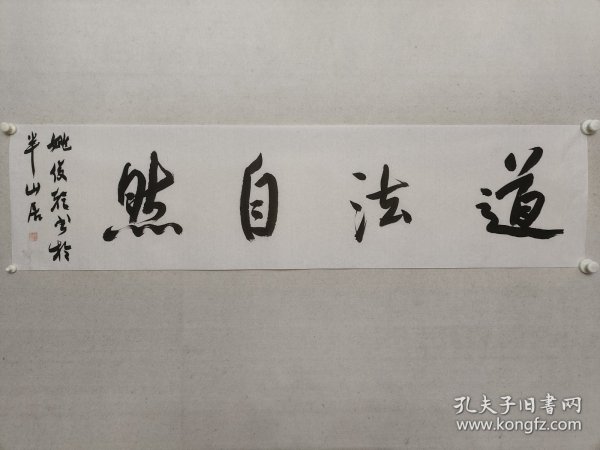 道法自然
姚俊卿书於
半山居
孔夫子旧書网
www.kongfz.com